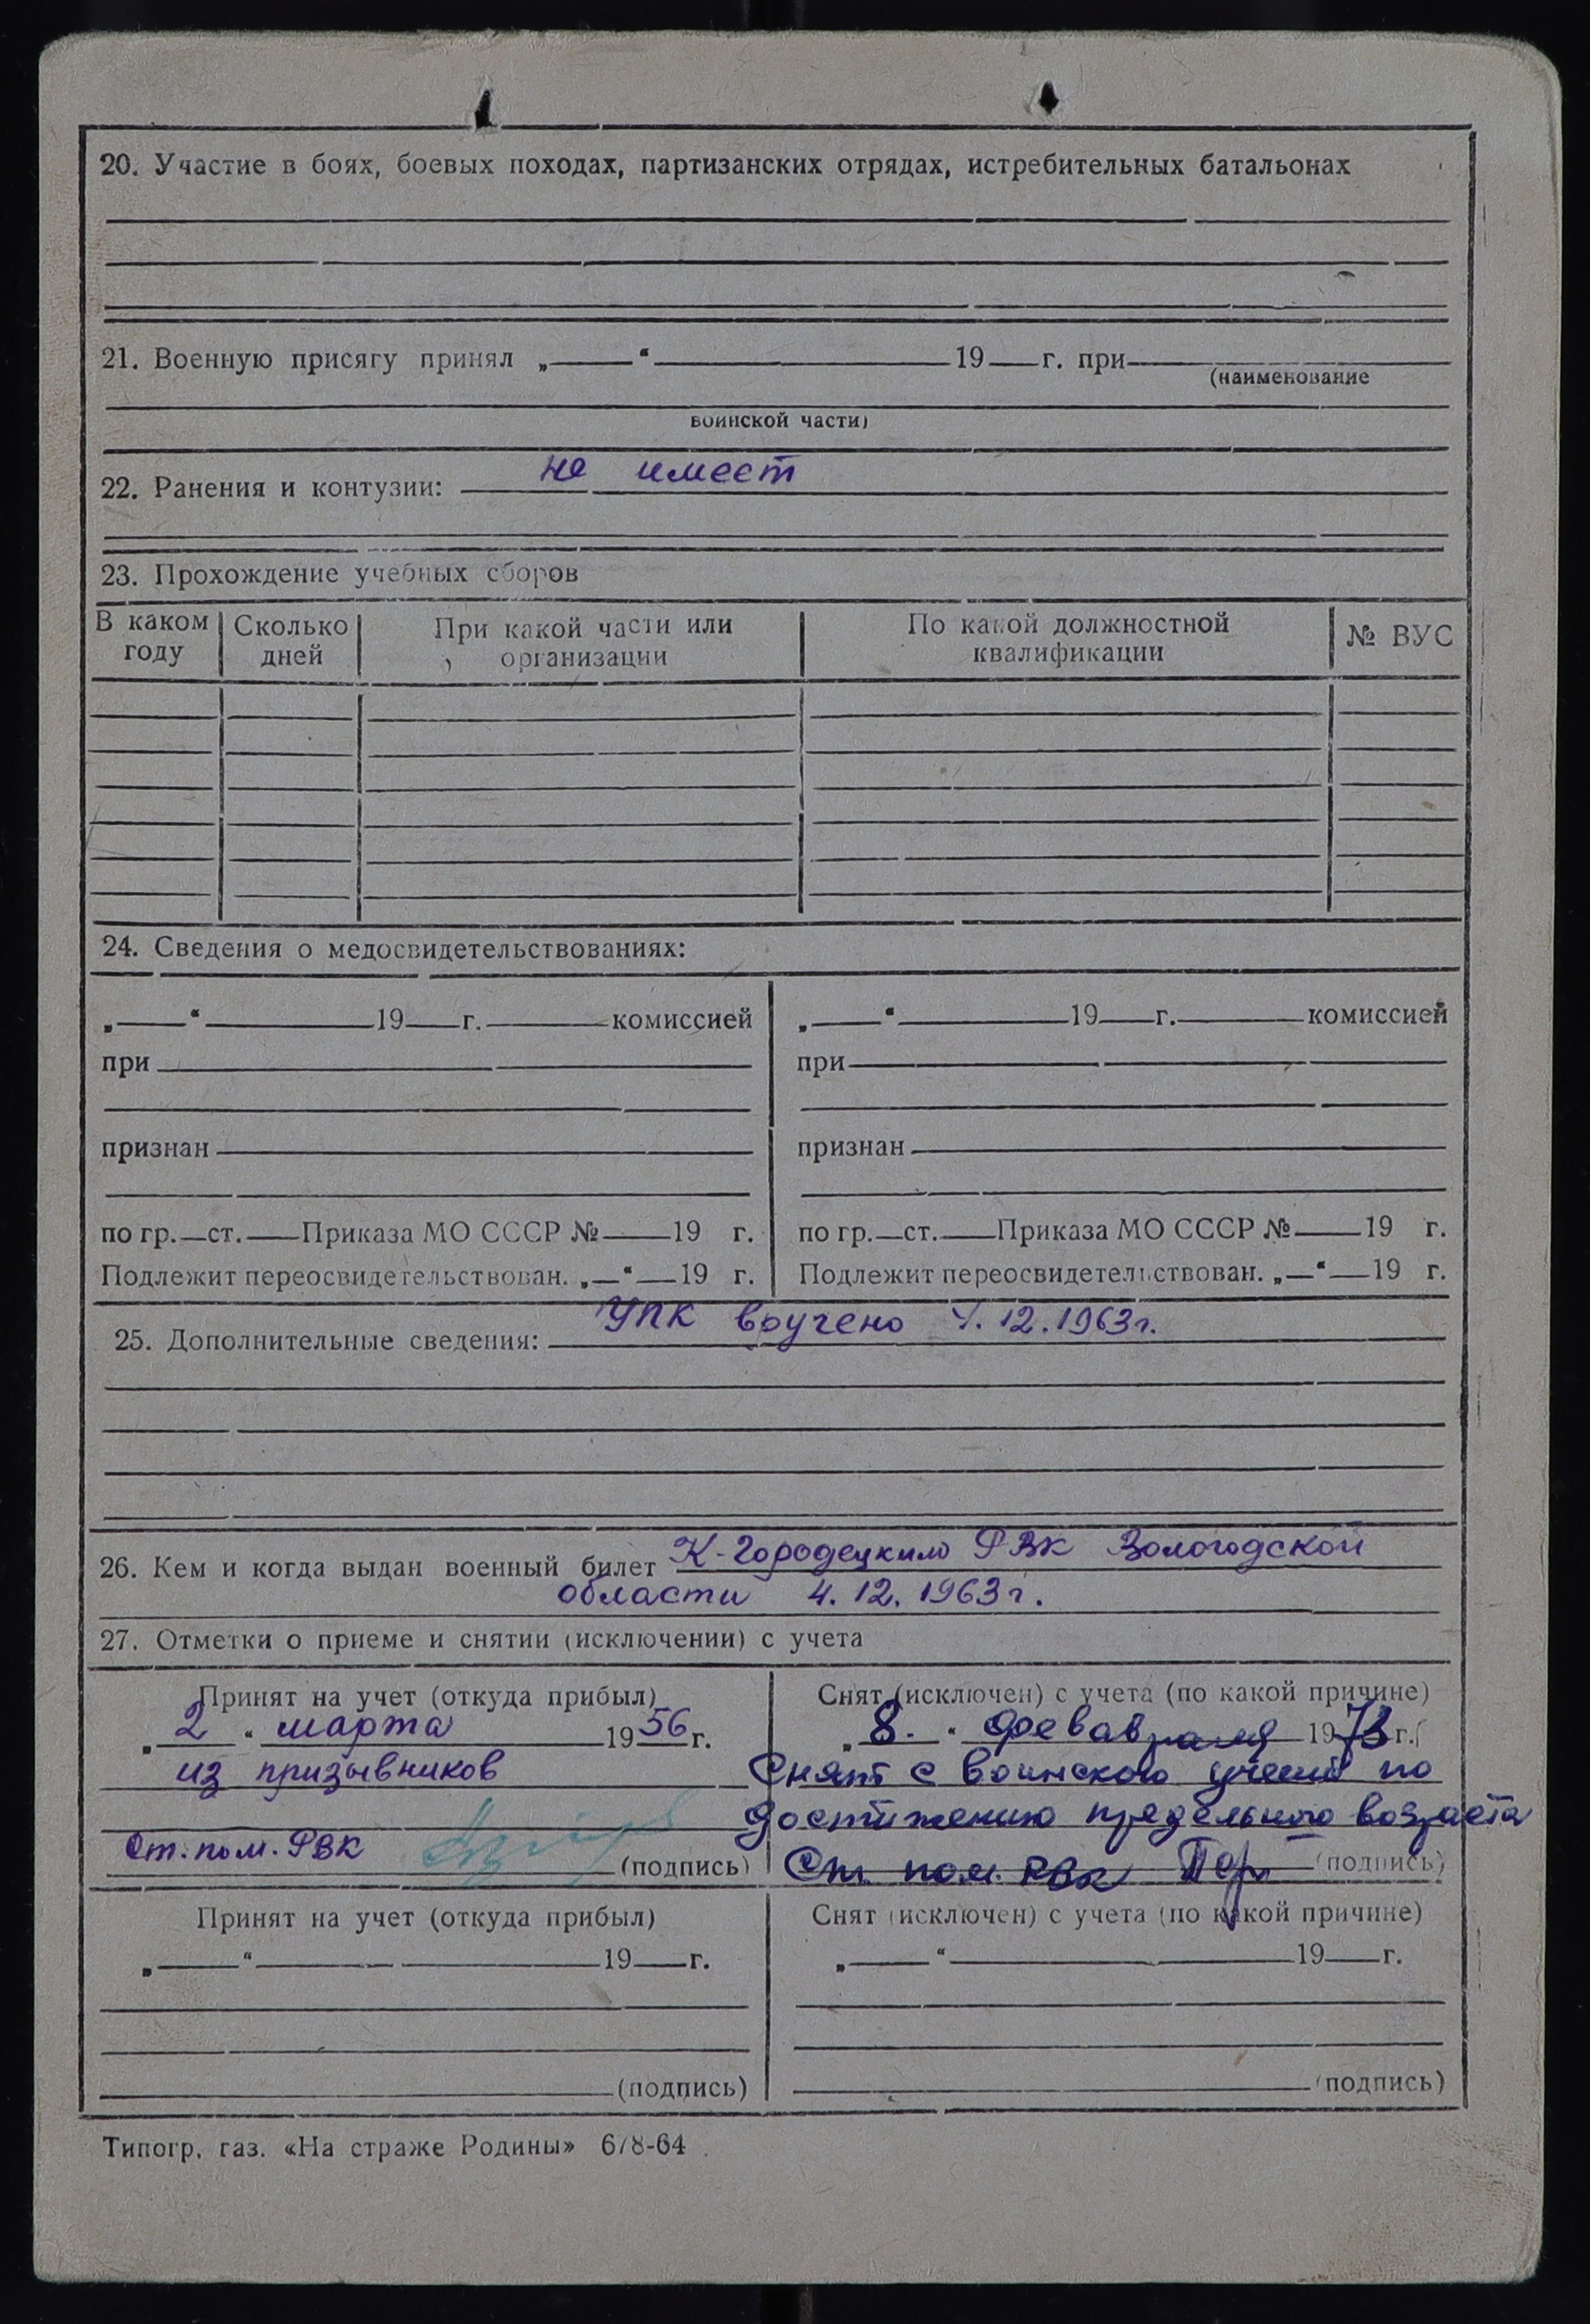 20. Участие в боях, боевых походах, партизанских отрядах, истребительных батальонах
21. Военную присягу принял „ “ 19 г. при
(наименование
воинской части)
22. Ранения и контузии: не имеет
23. Прохождение учебных сборов
В каком году Сколько дней При какой части или организации По какой должностной квалификации № ВУС
24. Сведения о медосвидетельствованиях:
„ “ 19 г. комиссией
при
признан
по гр. ст. Приказа МО СССР № 19 г.
Подлежит переосвидетельствован. „ “ 19 г.
„ “ 19 г. комиссией
при
признан
по гр. ст. Приказа МО СССР № 19 г.
Подлежит переосвидетельствован. „ “ 19 г.
25. Дополнительные сведения: УПК вручено 4.12.1963г.
26. Кем и когда выдан военный билет К-Городецким РВК Вологодской
области 4.12.1963г.
27. Отметки о приеме и снятии (исключении) с учета
Принят на учет (откуда прибыл)
„ 2 “ марта 1956 г.
из призывников
Ст. пом. РВК (подпись)
Снят (исключен) с учета (по какой причине)
„ 8. “ 1973 г.
Снят с воинского учета по
достижению предельного возраста
Ст. пом. РВК (подпись)
Принят на учет (откуда прибыл)
„ “ 19 г.
(подпись)
Снят (исключен) с учета (по какой причине)
„ “ 19 г.
(подпись)
Типогр. газ. «На страже Родины» 678-64